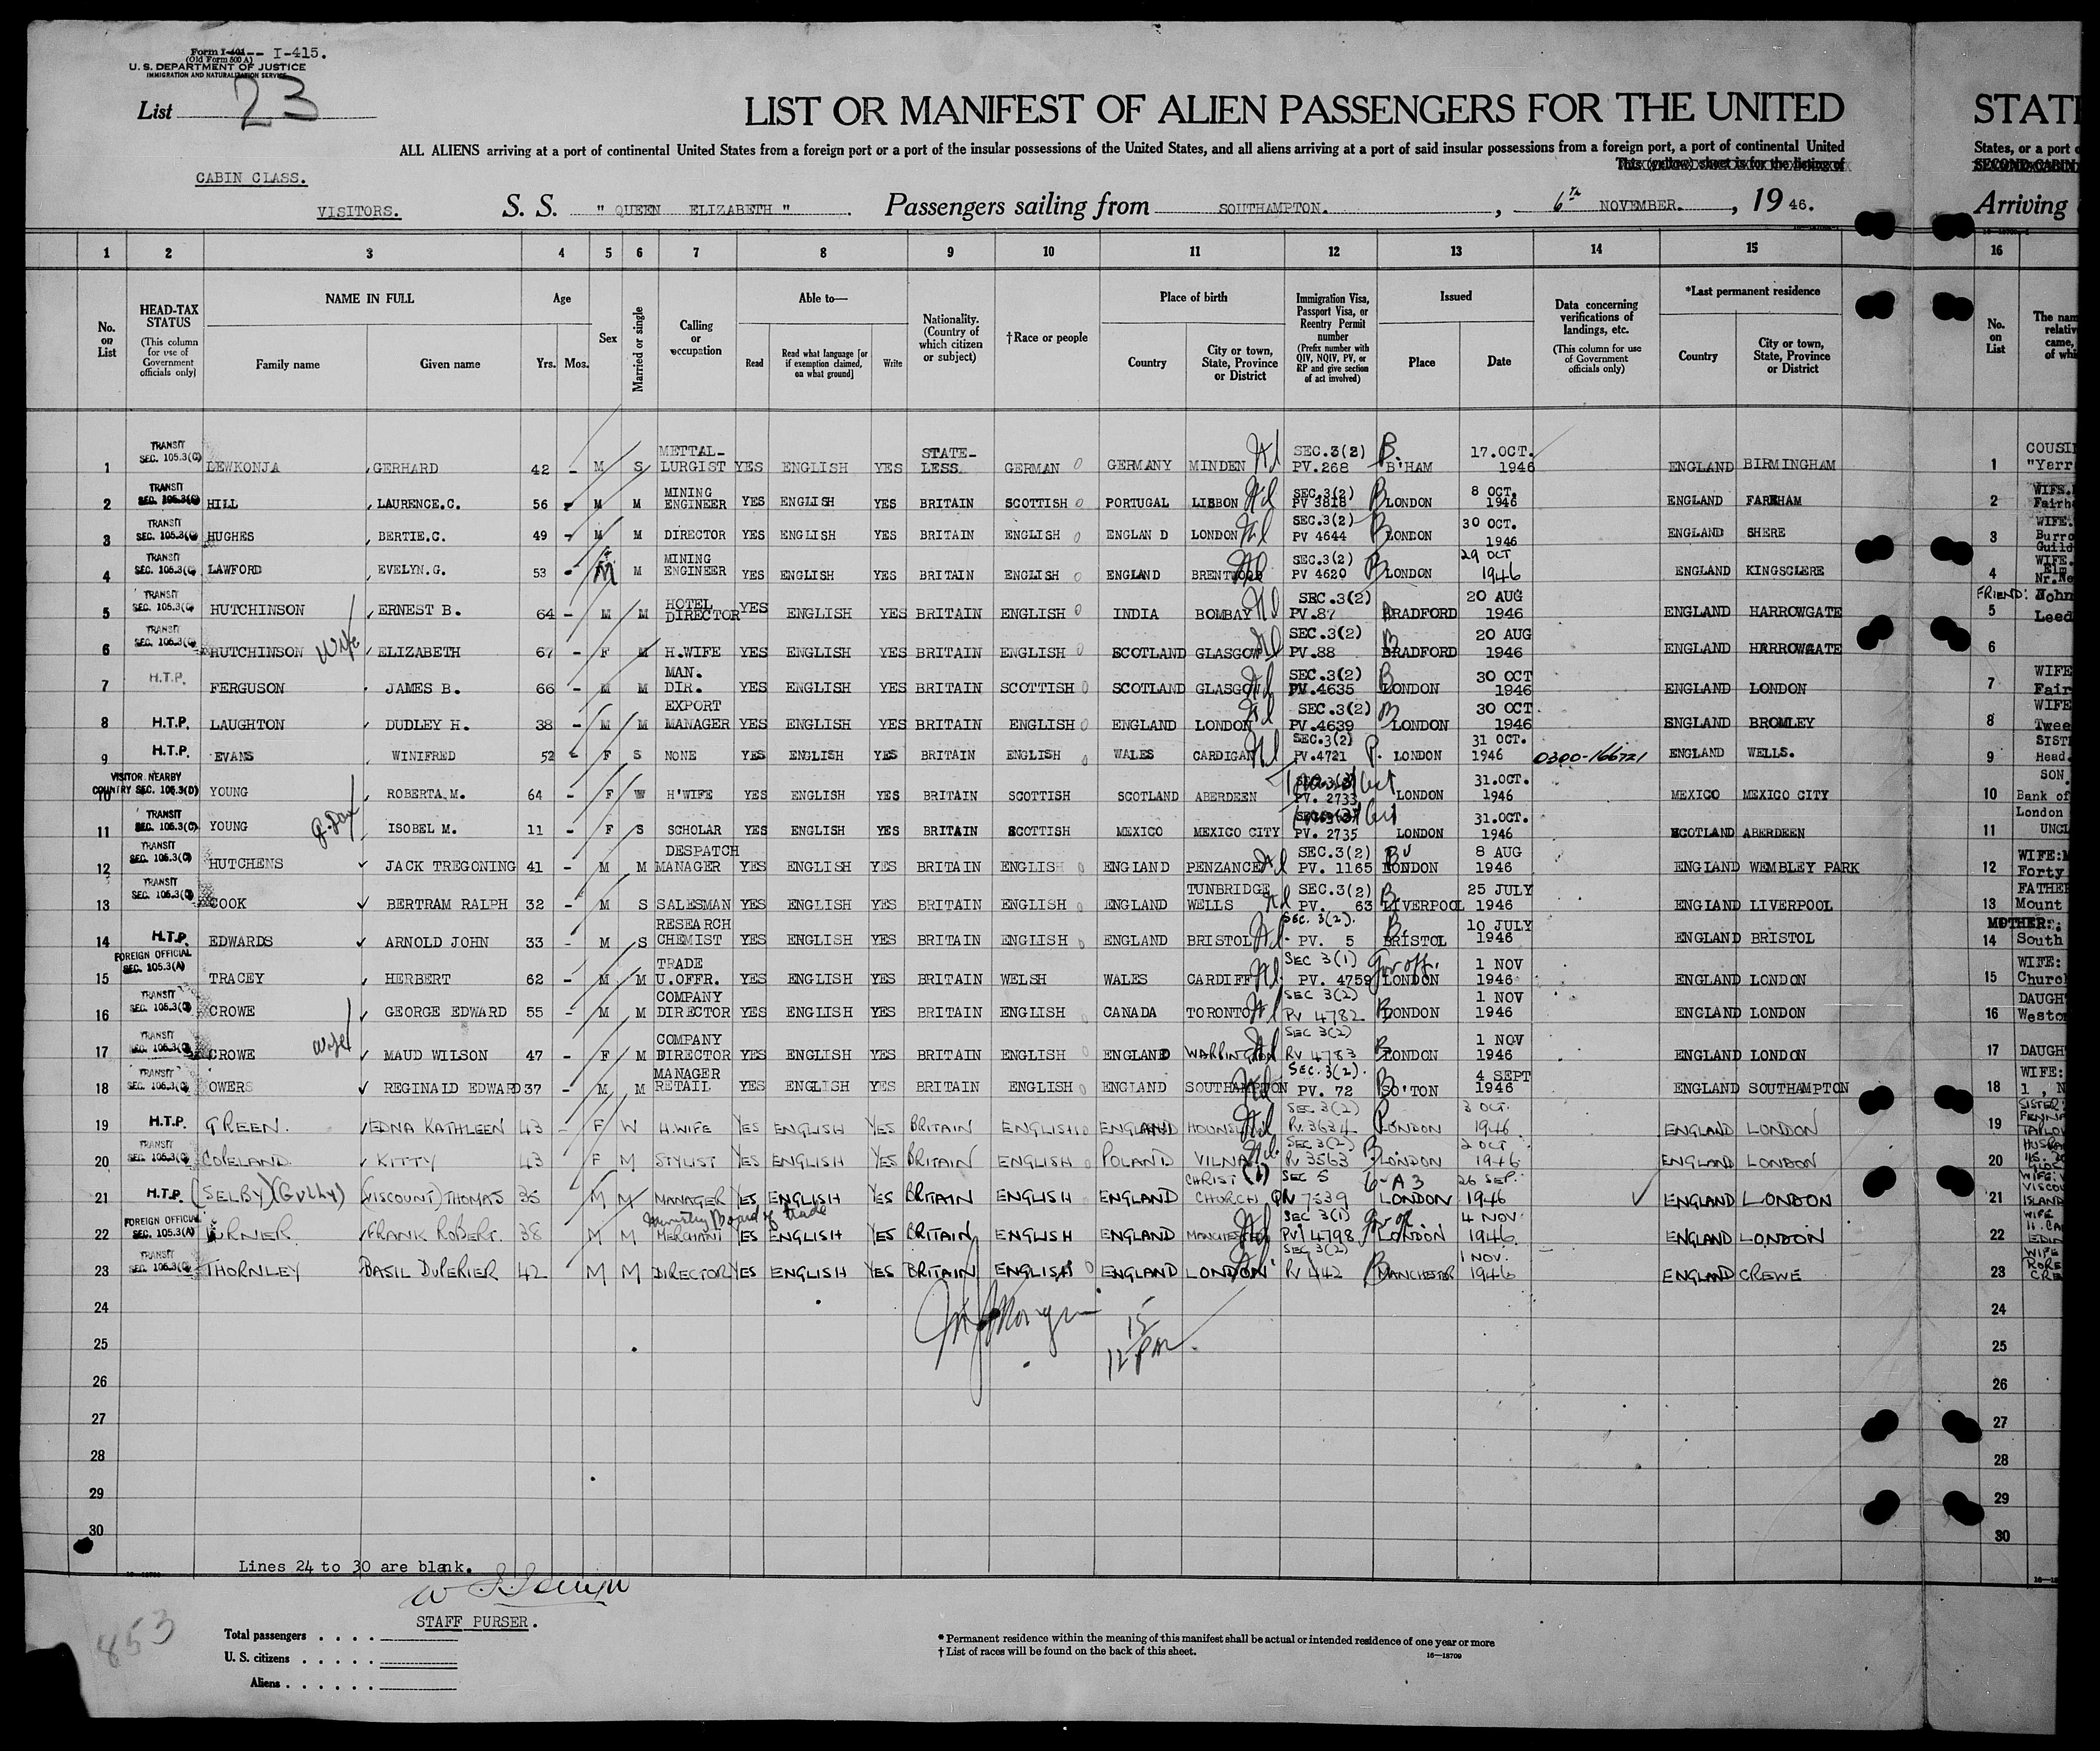 Form I-401-- I-415.
(Old Form 500 A)
U. S. DEPARTMENT OF JUSTICE
IMMIGRATION AND NATURALIZATION SERVICE
List 23
LIST OR MANIFEST OF ALIEN PASSENGERS FOR THE UNITED STAT
ALL ALIENS arriving at a port of continental United States from a foreign port or a port of the insular possessions of the United States, and all aliens arriving at a port of said insular possessions from a foreign port, a port of continental United States, or a port o
This (yellow) sheet is for the listing of SECOND-CABIN
CABIN CLASS.
VISITORS. S. S. " QUEEN ELIZABETH " Passengers sailing from SOUTHAMPTON. , 6th NOVEMBER. , 19 46. Arriving
1 2 3 4 5 6 7 8 9 10 11 12 13 14 15 16
No. on List
HEAD-TAX STATUS (This column for use of Government officials only)
NAME IN FULL Family name Given name
Age Yrs. Mos.
Sex
Married or single
Calling or occupation
Able to— Read Read what language [or if exemption claimed, on what ground] Write
Nationality. (Country of which citizen or subject)
†Race or people
Place of birth Country City or town, State, Province or District
Immigration Visa, Passport Visa, or Reentry Permit number (Prefix number with QIV, NQIV, PV, or RP and give section of act involved)
Issued Place Date
Data concerning verifications of landings, etc. (This column for use of Government officials only)
*Last permanent residence Country City or town, State, Province or District
No. on List
The nam relativ came, of whi
1 TRANSIT SEC. 105.3(C) LEWKONJA GERHARD 42 - M S METTAL-LURGIST YES ENGLISH YES STATE-LESS. GERMAN GERMANY MINDEN SEC.3(2) PV.268 B'HAM 17.OCT. 1946 ENGLAND BIRMINGHAM 1 COUSI "Yarr
2 TRANSIT SEC. 105.3(C) HILL LAURENCE.C. 56 - M M MINING ENGINEER YES ENGLISH YES BRITAIN SCOTTISH PORTUGAL LISBON SEC.3(2) PV 3818 LONDON 8 OCT. 1946 ENGLAND FAREHAM 2 WIFE. Fairh
3 TRANSIT SEC. 105.3(C) HUGHES BERTIE.C. 49 - M M DIRECTOR YES ENGLISH YES BRITAIN ENGLISH ENGLAN D LONDON SEC.3(2) PV 4644 LONDON 30 OCT. 1946 ENGLAND SHERE 3 WIFE. Burro Guild
4 TRANSIT SEC. 105.3(C) LAWFORD EVELYN.G. 53 - M M MINING ENGINEER YES ENGLISH YES BRITAIN ENGLISH ENGLAND BRENTWOOD SEC.3(2) PV 4620 LONDON 29 OCT 1946 ENGLAND KINGSCLERE 4 WIFE. Elm Nr.Ne
5 TRANSIT SEC. 105.3(C) HUTCHINSON ERNEST B. 64 - M M HOTEL DIRECTOR YES ENGLISH YES BRITAIN ENGLISH INDIA BOMBAY SEC.3(2) PV.87 BRADFORD 20 AUG 1946 ENGLAND HARROWGATE FRIEND: John 5 Leed
6 TRANSIT SEC. 105.3(C) HUTCHINSON wife ELIZABETH 67 - F M H.WIFE YES ENGLISH YES BRITAIN ENGLISH SCOTLAND GLASGOW SEC.3(2) PV.88 BRADFORD 20 AUG 1946 ENGLAND HARROWGATE 6
7 H.T.P. FERGUSON JAMES B. 66 - M M MAN. DIR. YES ENGLISH YES BRITAIN SCOTTISH SCOTLAND GLASGOW SEC.3(2) PV.4635 LONDON 30 OCT 1946 ENGLAND LONDON 7 WIFE Fair
8 H.T.P. LAUGHTON DUDLEY H. 38 - M M EXPORT MANAGER YES ENGLISH YES BRITAIN ENGLISH ENGLAND LONDON SEC.3(2) PV.4639 LONDON 30 OCT 1946 ENGLAND BROMLEY 8 WIFE Twee
9 H.T.P. EVANS WINIFRED 52 - F S NONE YES ENGLISH YES BRITAIN ENGLISH WALES CARDIGAN SEC.3(2) PV.4721 P. LONDON 31 OCT. 1946 0300-166721 ENGLAND WELLS. 9 SIST Head.
10 VISITOR NEARBY COUNTRY SEC. 105.3(D) YOUNG ROBERTA.M. 64 - F W H'WIFE YES ENGLISH YES BRITAIN SCOTTISH SCOTLAND ABERDEEN PV. 2733 LONDON 31.OCT. 1946 MEXICO MEXICO CITY 10 SON. Bank of London
11 TRANSIT SEC. 105.3(C) YOUNG ISOBEL M. 11 - F S SCHOLAR YES ENGLISH YES BRITAIN SCOTTISH MEXICO MEXICO CITY PV. 2735 LONDON 31.OCT. 1946 SCOTLAND ABERDEEN 11 UNCL
12 TRANSIT SEC. 105.3(C) HUTCHENS JACK TREGONING 41 - M M DESPATCH MANAGER YES ENGLISH YES BRITAIN ENGLISH ENGLAND PENZANCE SEC.3(2) PV. 1165 LONDON 8 AUG 1946 ENGLAND WEMBLEY PARK 12 WIFE: Forty
13 TRANSIT SEC. 105.3(C) COOK BERTRAM RALPH 32 - M S SALESMAN YES ENGLISH YES BRITAIN ENGLISH ENGLAND TUNBRIDGE WELLS SEC.3(2) PV. 63 LIVERPOOL 25 JULY 1946 ENGLAND LIVERPOOL 13 FATHER Mount
14 H.T.P. EDWARDS ARNOLD JOHN 33 - M S RESEARCH CHEMIST YES ENGLISH YES BRITAIN ENGLISH ENGLAND BRISTOL SEC. 3(2). PV. 5 BRISTOL 10 JULY 1946 ENGLAND BRISTOL 14 MOTHER: South
15 FOREIGN OFFICIAL SEC. 105.3(A) TRACEY HERBERT 62 - M M TRADE U.OFFR. YES ENGLISH YES BRITAIN WELSH WALES CARDIFF SEC 3(1) PV. 4759 Gov off. LONDON 1 NOV 1946 ENGLAND LONDON 15 WIFE: Churc
16 TRANSIT SEC. 105.3(C) CROWE GEORGE EDWARD 55 - M M COMPANY DIRECTOR YES ENGLISH YES BRITAIN ENGLISH CANADA TORONTO SEC 3(2) PV 4782 LONDON 1 NOV 1946 ENGLAND LONDON 16 DAUGH Westo
17 TRANSIT SEC. 105.3(C) CROWE wife MAUD WILSON 47 - F M COMPANY DIRECTOR YES ENGLISH YES BRITAIN ENGLISH ENGLAND WARRINGTON SEC 3(2) PV 4783 LONDON 1 NOV 1946 ENGLAND LONDON 17 DAUGH
18 TRANSIT SEC. 105.3(C) OWERS REGINALD EDWARD 37 - M M MANAGER RETAIL YES ENGLISH YES BRITAIN ENGLISH ENGLAND SOUTHAMPTON SEC. 3(2). PV. 72 SO'TON 4 SEPT 1946 ENGLAND SOUTHAMPTON 18 WIFE: 1 , N
19 H.T.P. GREEN. EDNA KATHLEEN 43 - F W H.WIFE YES ENGLISH YES BRITAIN ENGLISH ENGLAND SEC. 3(2) PV. 3634 LONDON 3 OCT. 1946 ENGLAND LONDON 19 SISTER
20 TRANSIT SEC. 105.3(C) COPELAND KITTY 43 F M STYLIST YES ENGLISH YES BRITAIN ENGLISH POLAND VILNA SEC 3(2) PV 3563 LONDON 2 OCT 1946 ENGLAND LONDON 20
21 H.T.P. (SELBY) (Gully) (VISCOUNT) THOMAS 35 M M MANAGER YES ENGLISH YES BRITAIN ENGLISH ENGLAND CHRIST CHURCH (1) SEC 5 QIV 7539 6-A 3 LONDON 26 SEP. 1946 ENGLAND LONDON 21 WIFE: VISCOU ISLAND
22 FOREIGN OFFICIAL SEC. 105.3(A) FRANK ROBERT. 38 M M Board of trade MERCHANT YES ENGLISH YES BRITAIN ENGLISH ENGLAND MANCHESTER SEC 3(1) PV 4798 LONDON 4 NOV 1946 ENGLAND LONDON 22 WIFE
23 TRANSIT SEC. 105.3(C) THORNLEY BASIL DUPERIER 42 M M DIRECTOR YES ENGLISH YES BRITAIN ENGLISH ENGLAND LONDON SEC 3(2) PV 442 MANCHESTER 1 NOV. 1946 ENGLAND CREWE 23 WIFE CRE
24 24
25 15 12 PM 25
26 26
27 27
28 28
29 29
30 30
Lines 24 to 30 are blank.
STAFF PURSER.
853
Total passengers . . . .
U. S. citizens . . . . .
Aliens . . . . . .
* Permanent residence within the meaning of this manifest shall be actual or intended residence of one year or more
† List of races will be found on the back of this sheet.
16—18709